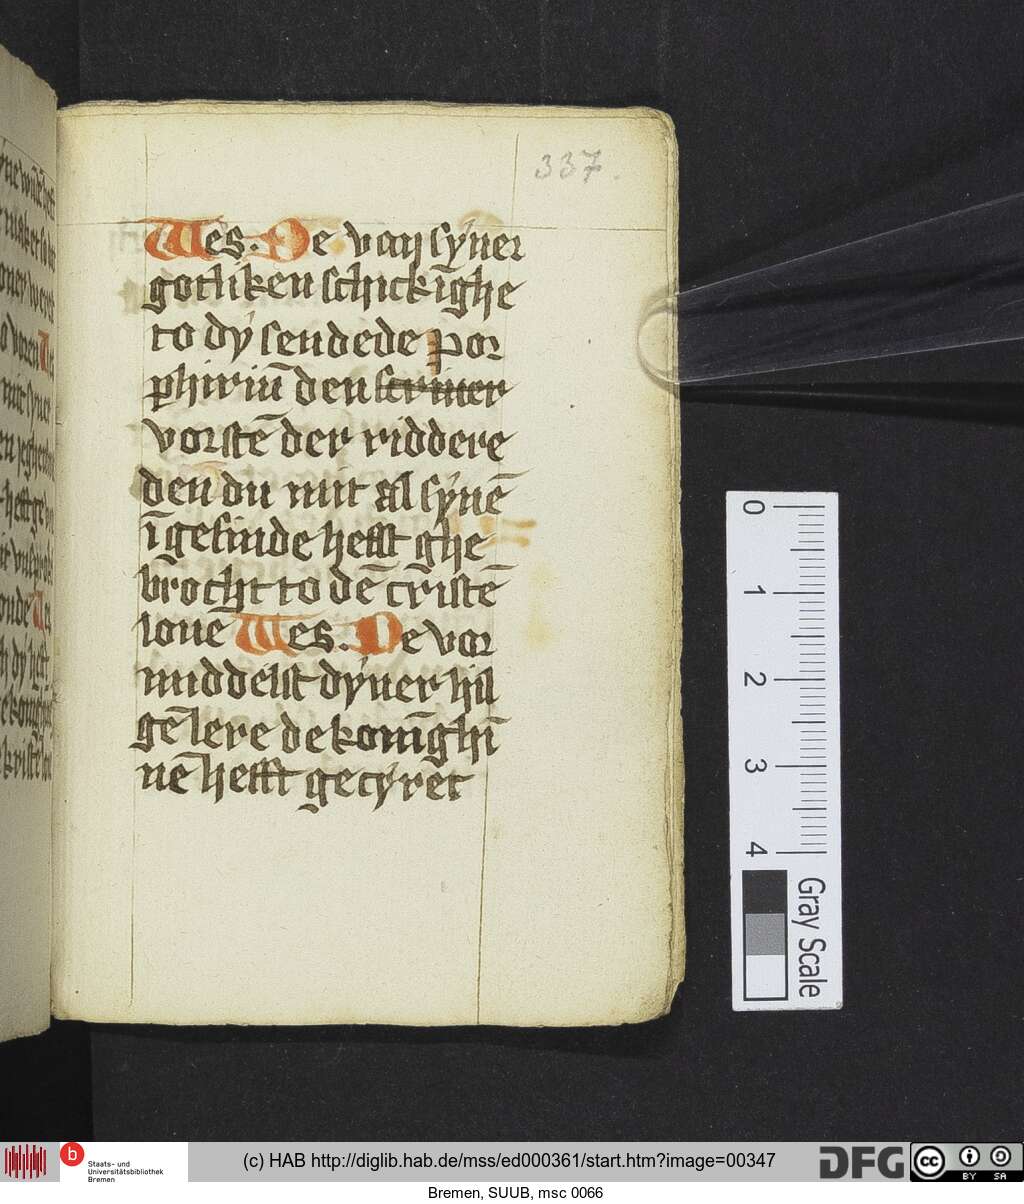 337.
Wes. De van syner
gotliken schickīghe
to dy sendede por
phiriū den scriuer
vorstē der riddere
den du mit al synē
īgesinde hefft ghe
brocht to dē cristē
louē Wes. De vor
middelst dyner hil
gē lere de konīghī
nē hefft gecyret
0
1
2
3
4
Gray Scale
b Staats- und
Universitätsbibliothek
Bremen
(c) HAB http://diglib.hab.de/mss/ed000361/start.htm?image=00347
DFG
cc BY SA
Bremen, SUUB, msc 0066